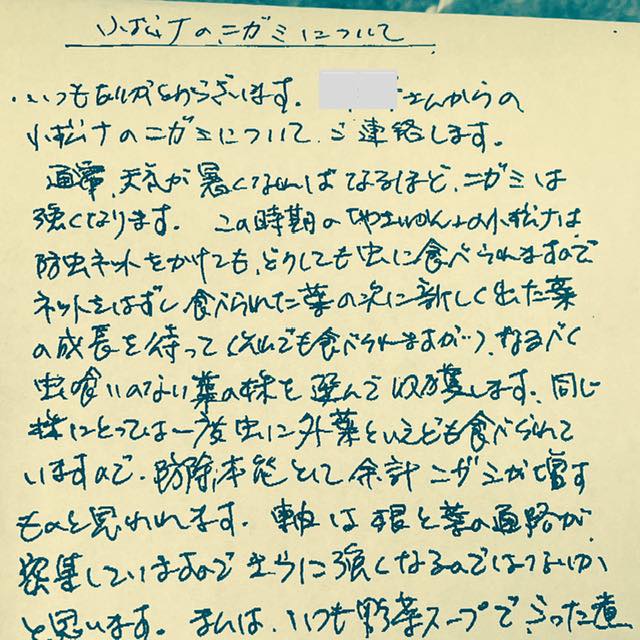 小松ナのニガミについて
・いつもありがとうございます。 さんからの
小松ナのニガミについてご連絡します。
通常、天気が暑くなればなるほど、ニガミは
強くなります。この時期の の小松ナは
防虫ネットをかけても、どうしても虫に食べられますので
ネットをはずし食べられた葉の次に新しく出た葉
の成長を待って(それでも食べられますが)、なるべく
虫喰いのない葉の株を選んで収獲します、同じ
株にとっては一度虫に外葉といえども食べられて
いますので、防除本能として余計ニガミが増す
ものと思われます。軸は根と葉の通路が
密集していますので さらに強くなるのではないか
と思います。 は、いつも野菜スープで った煮